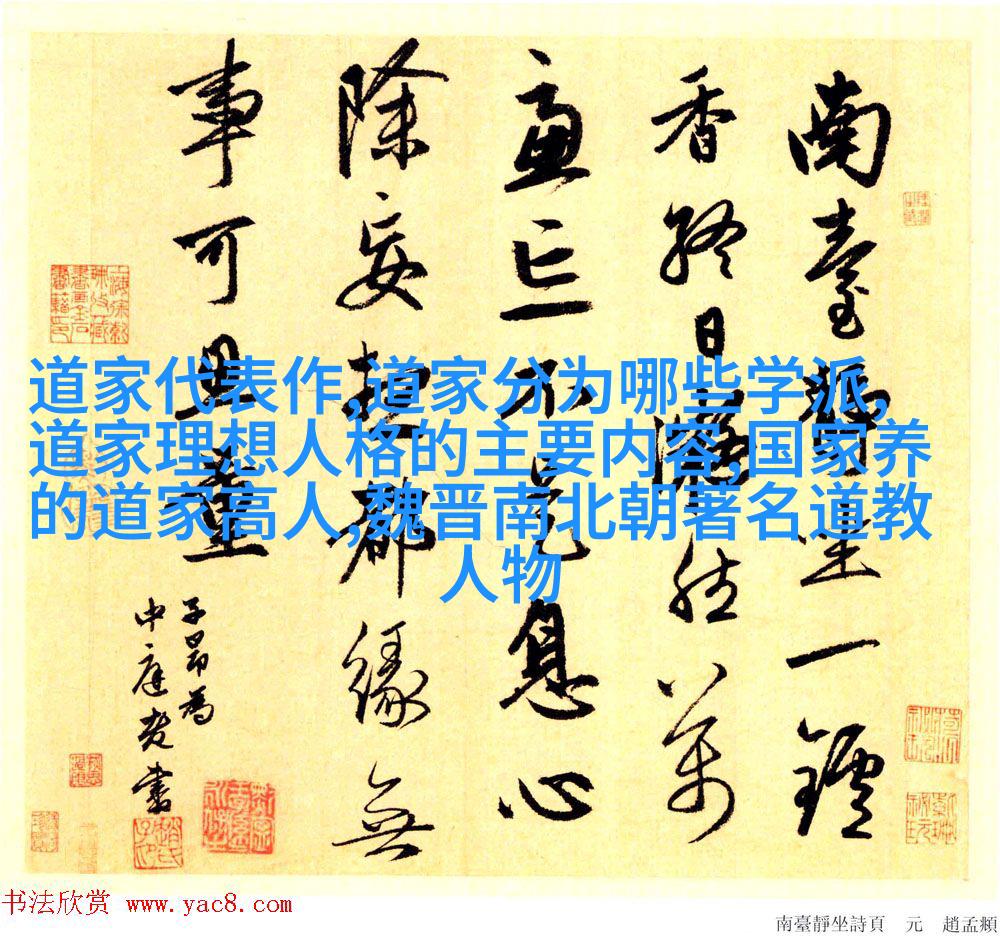 道家代表作,道家分为哪些学派,
道家理想人格的主要内容,国家养
的道家高人,魏晋南北朝著名道教
人物
南臺靜坐一鑪
香終日凝然萬
慮亡不是息心
除妄想都緣無
事可思量
子昂為
中庭老書
书法欣赏 www.yac8.com
南臺靜坐詩頁 元 趙孟頫